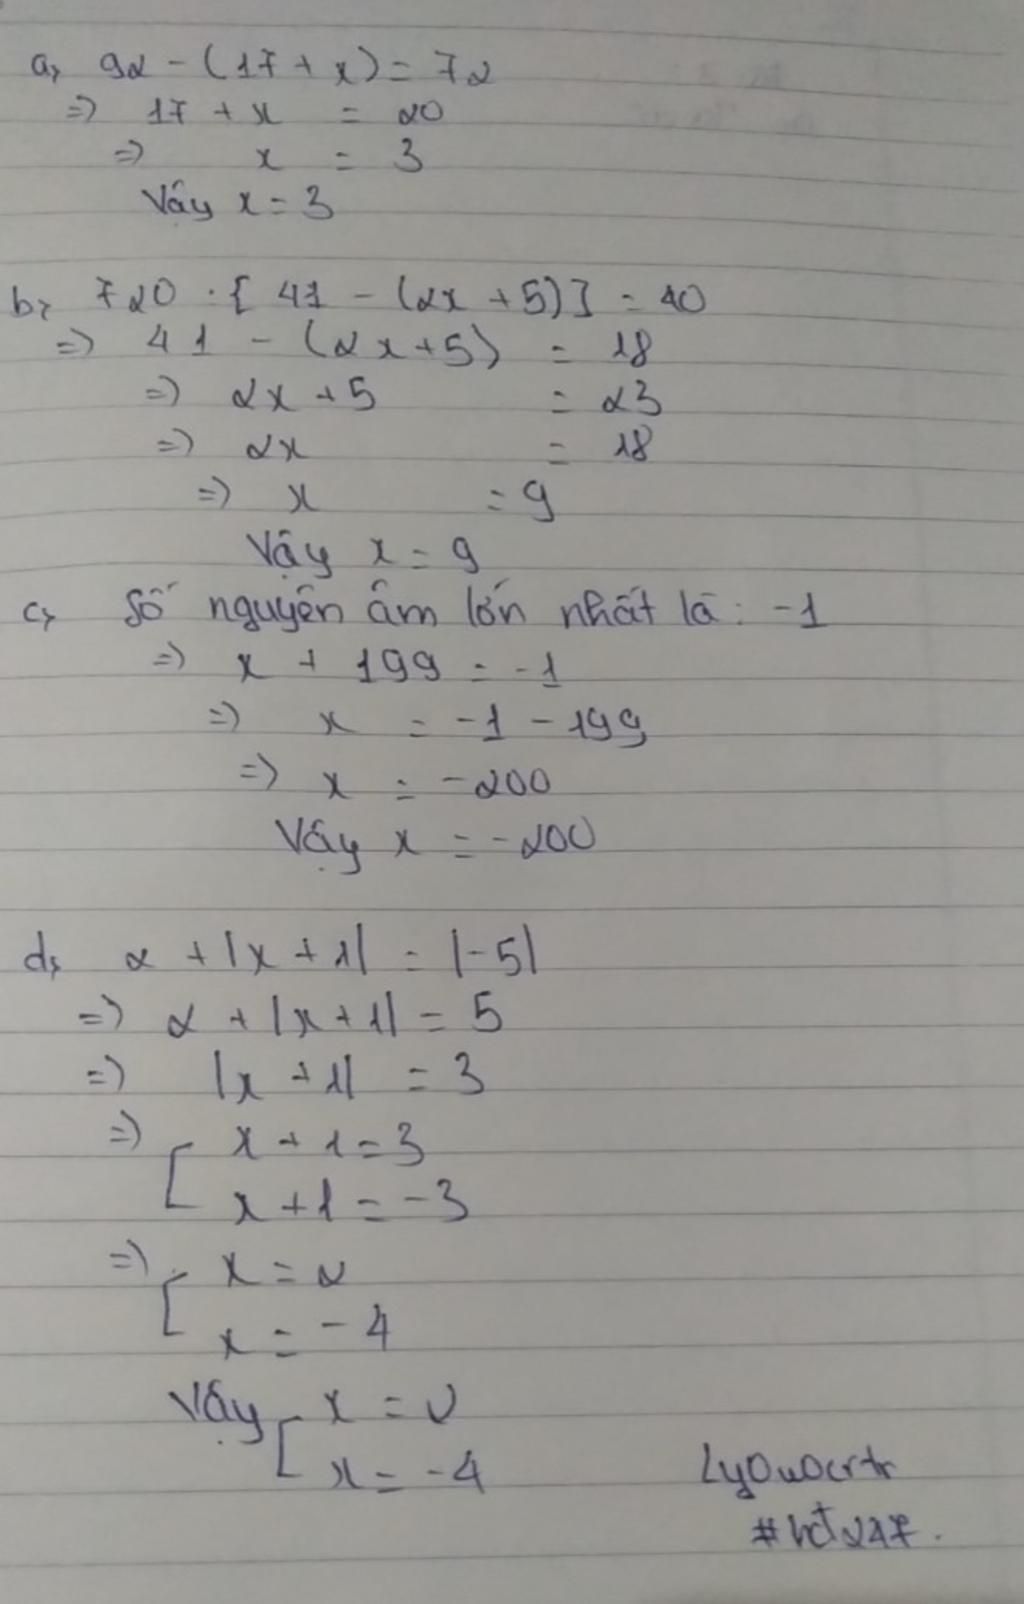 a, 92 - (17 + x) = 72
=> 17 + x = 20
=> x = 3
Vậy x = 3
b, 720 : [ 41 - (2x + 5)] = 40
=> 41 - (2x + 5) = 18
=> 2x + 5 = 23
=> 2x = 18
=> x = 9
Vậy x = 9
c, Số nguyên âm lớn nhất là : -1
=> x + 199 = -1
=> x = -1 - 199
=> x = -200
Vậy x = -200
d, 2 + |x + 1| = |-5|
=> 2 + |x + 1| = 5
=> |x + 1| = 3
=> [ x + 1 = 3
x + 1 = -3
=> [ x = 2
x = -4
Vậy [ x = 2
x = -4
#hđ247.